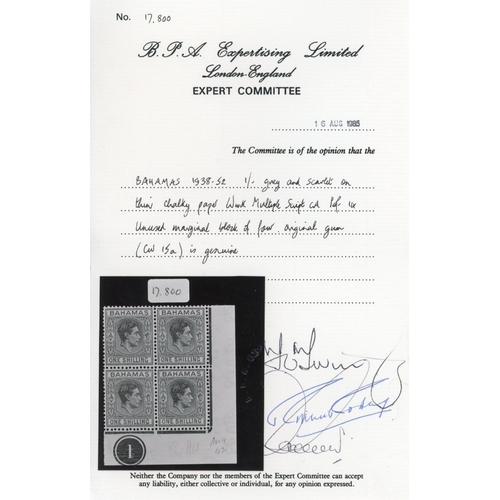 No. 17,800
B.P.A. Expertising Limited
London-England
EXPERT COMMITTEE
16 AUG 1985
The Committee is of the opinion that the
BAHAMAS 1938-52 1/- grey and scarlet on
thin chalky paper Wmk Multiple Script CA Perf 14
Unused marginal block of four original gum
(CW 15a) is genuine
17,800
BAHAMAS BAHAMAS
ONE SHILLING ONE SHILLING
BAHAMAS BAHAMAS
ONE SHILLING ONE SHILLING
1
Neither the Company nor the members of the Expert Committee can accept
any liability, either collective or individual, for any opinion expressed.